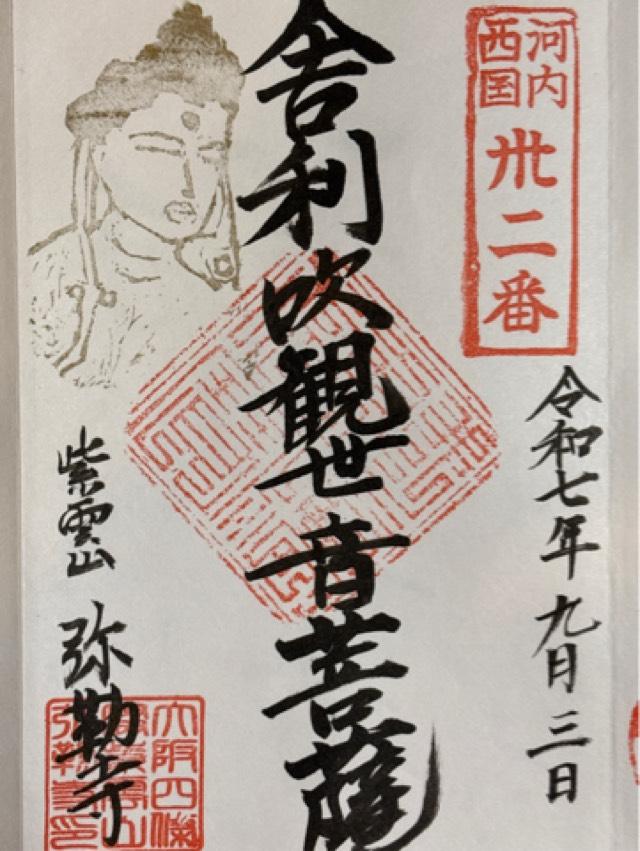 河内
西国
卅二番
令和七年九月三日
舎利吹観世音菩薩
紫雲山
弥勒寺